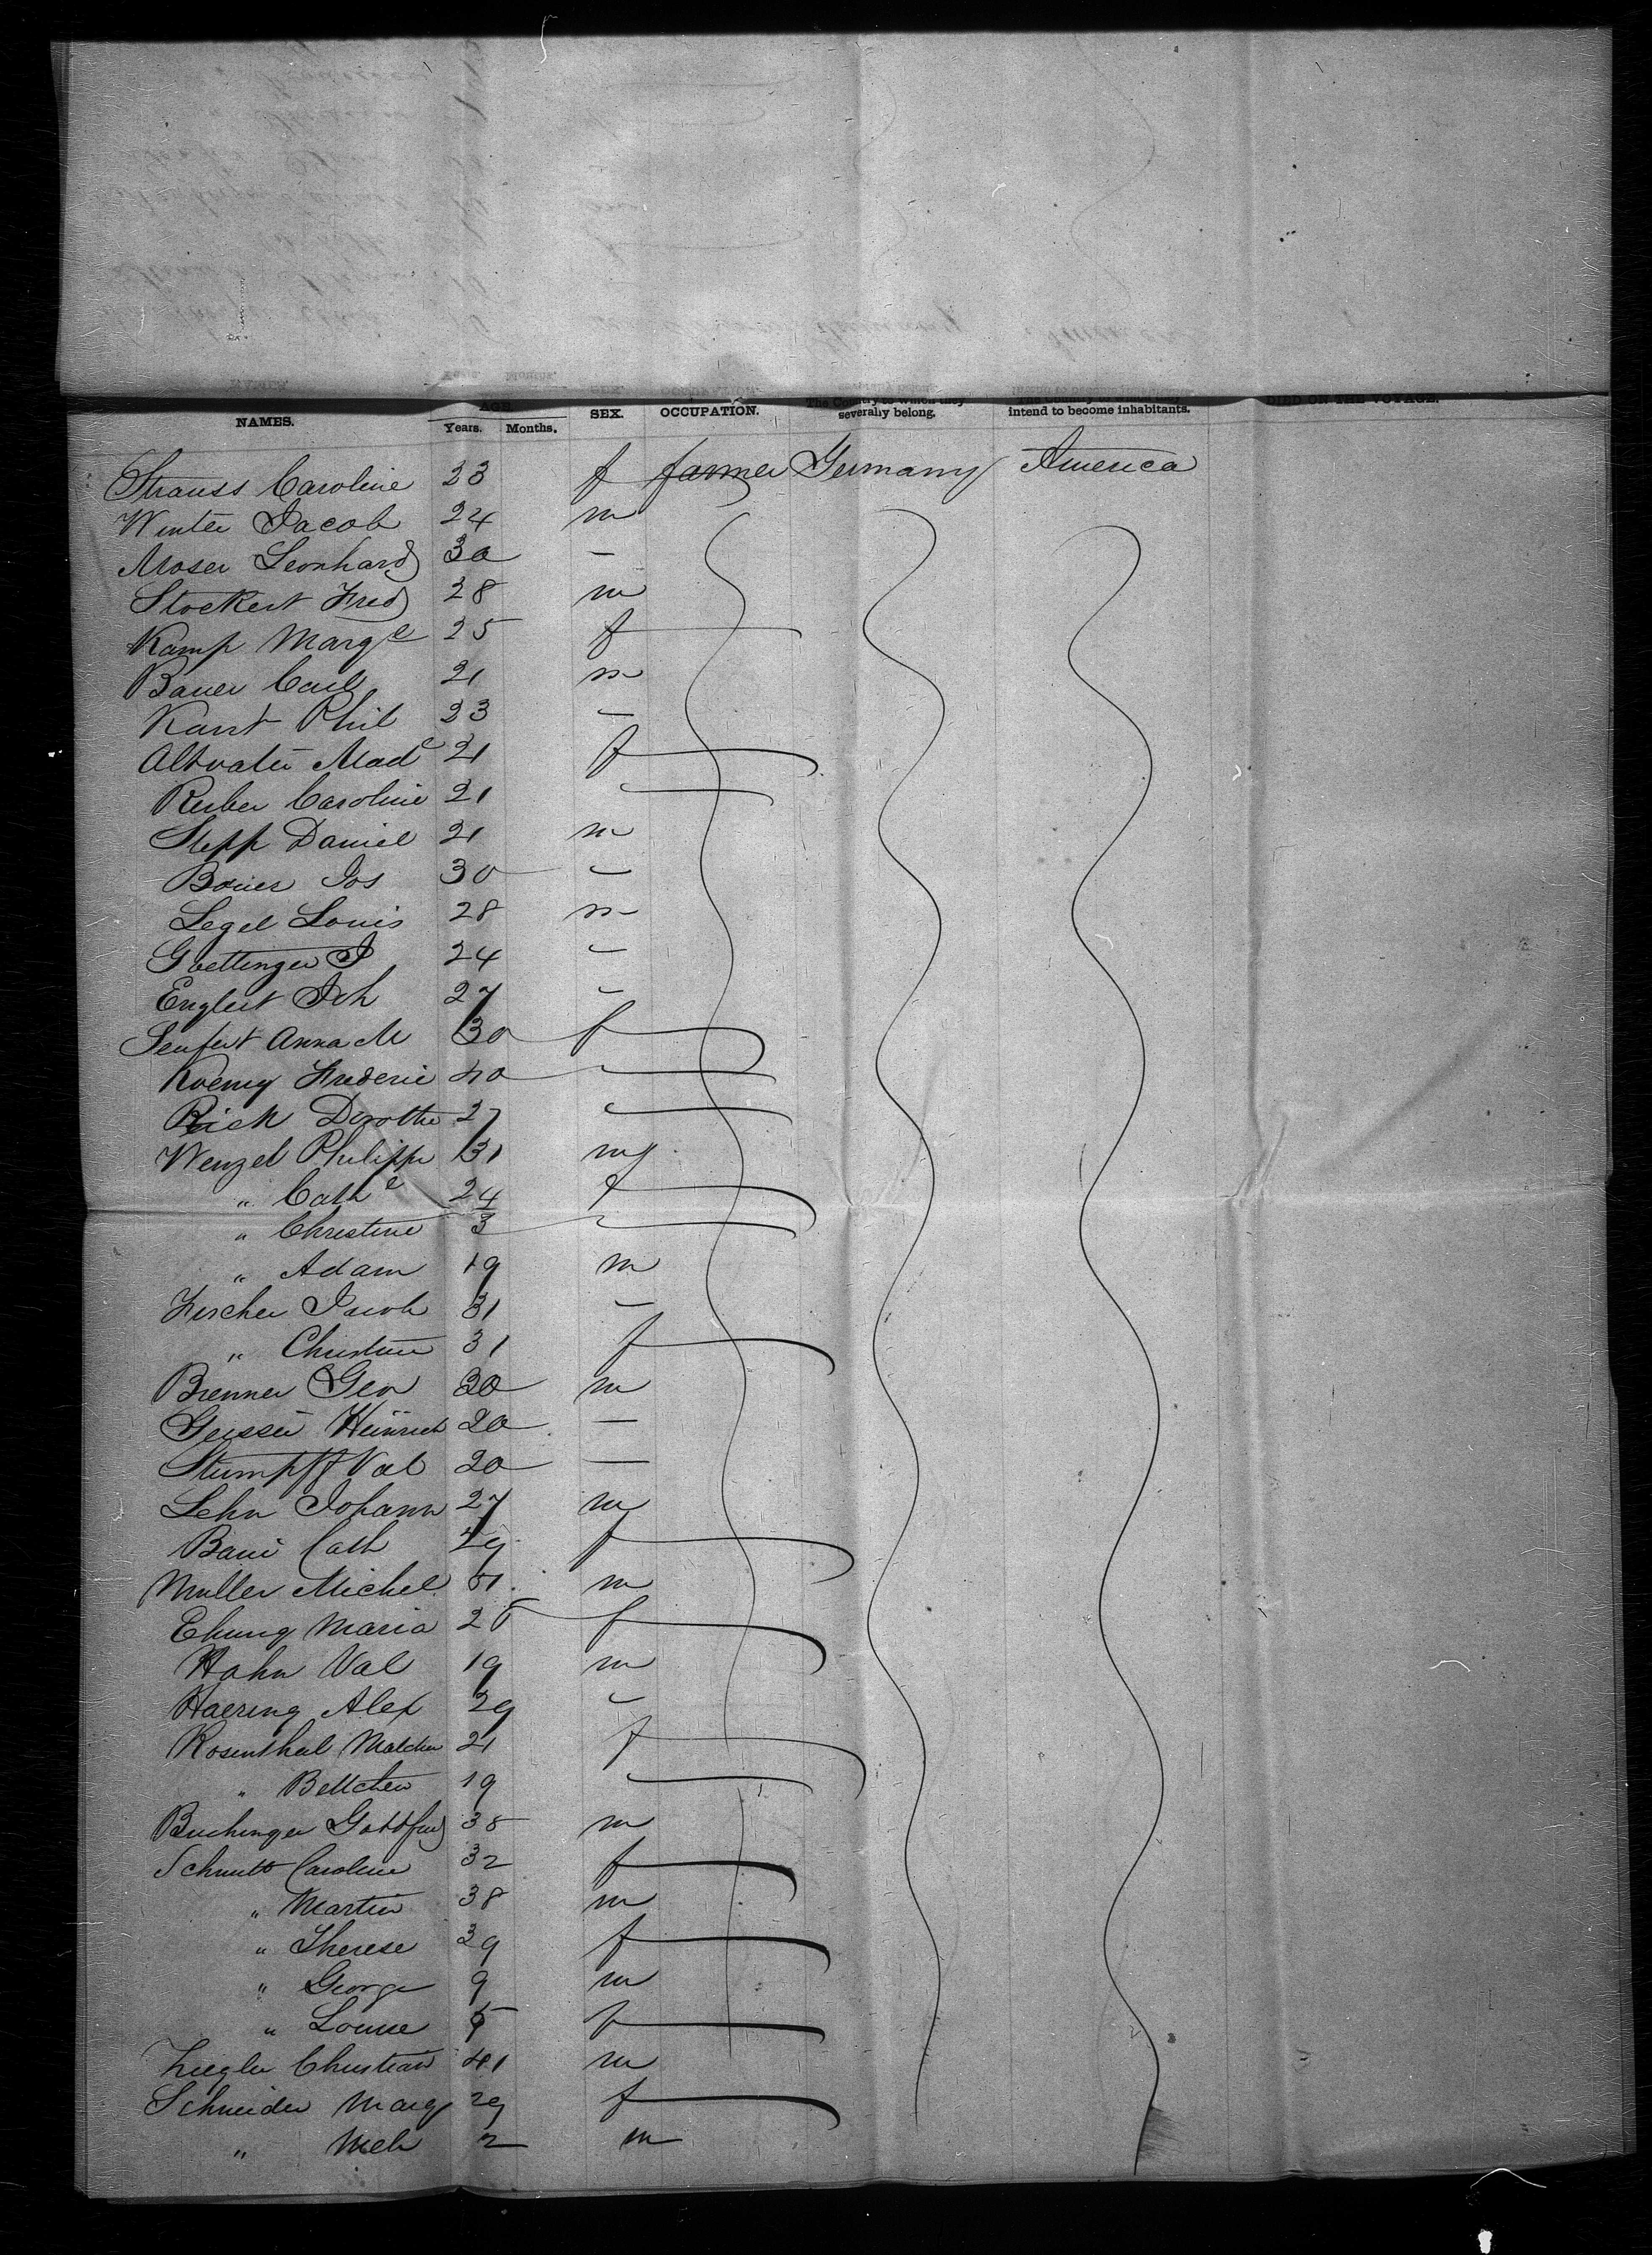 NAMES. AGE Years. Months. SEX. OCCUPATION. The Country to which they severally belong. intend to become inhabitants. DIED ON THE VOYAGE.
Strauss Caroline 23 f farmer Germany America
Winter Jacob 24 m
Moser Leonhard 30 –
Stockert Fred 28 m
Kamp Marg e 25 f
Bauer Carl 21 m
Kant Phil 23 –
Altvater Mad e 21 f
Reiber Caroline 21
Stepp Daniel 21 m
Bauer Jos 30 –
Legel Louis 28 m
Goettinger J 24 –
Englert Joh 27 –
Seufert Anna M 30 f
Koenig Frederic 40
Rick Dorothe 27
Wenzel Philipp 31 m
" Cath e 24 f
" Christine 3
" Adam 19 m
Fischer Jacob 31 –
" Christine 31 f
Brenner Geo 30 m
Geisser Heinrich 20 –
Stumpff Val 20 –
Lehn Johann 27 m
Cath f
Muller Michel 51 m
Maria 25 f
Hahn Val 19 m
Haering Alex 29 –
Rosenthal Malchen 21 f
" Bettchen 19
Buchinger Gottfried 38 m
Schmitt Caroline 32 f
" Martin 38 m
" Therese 39 f
" George 9 m
" Louise f
Ziegler Christian 41 m
Schneider Marg 29 f
" Mch 2 m